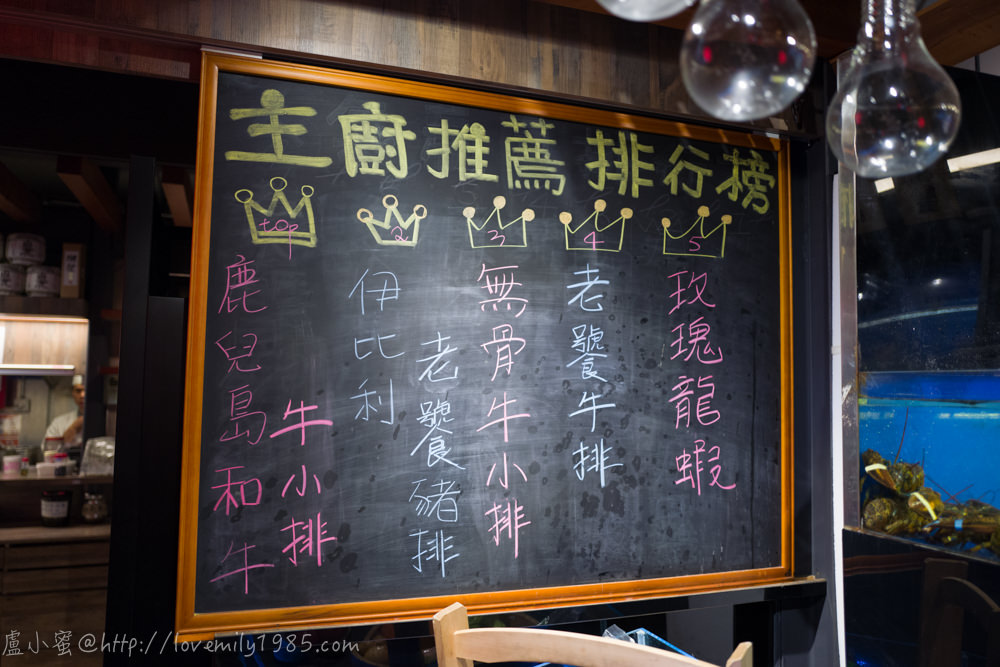 主廚推薦排行榜
top
鹿兒島和牛
牛小排
2
伊比利
老饕豬排
3
無骨牛小排
4
老饕牛排
5
玫瑰龍蝦
盧小蜜@http://lovemily1985.com